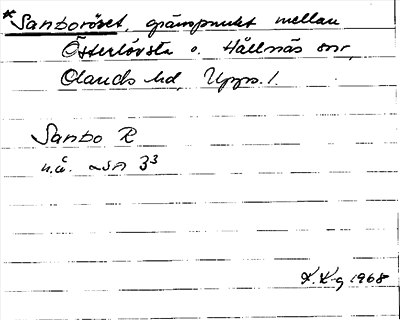 *Sanboröset, gränspunkt mellan
Österlövsta o. Hållnäs snr,
Olands hd, Upps. l.
Sanbo R
u.å. LSA 3³
K. K-g 1968